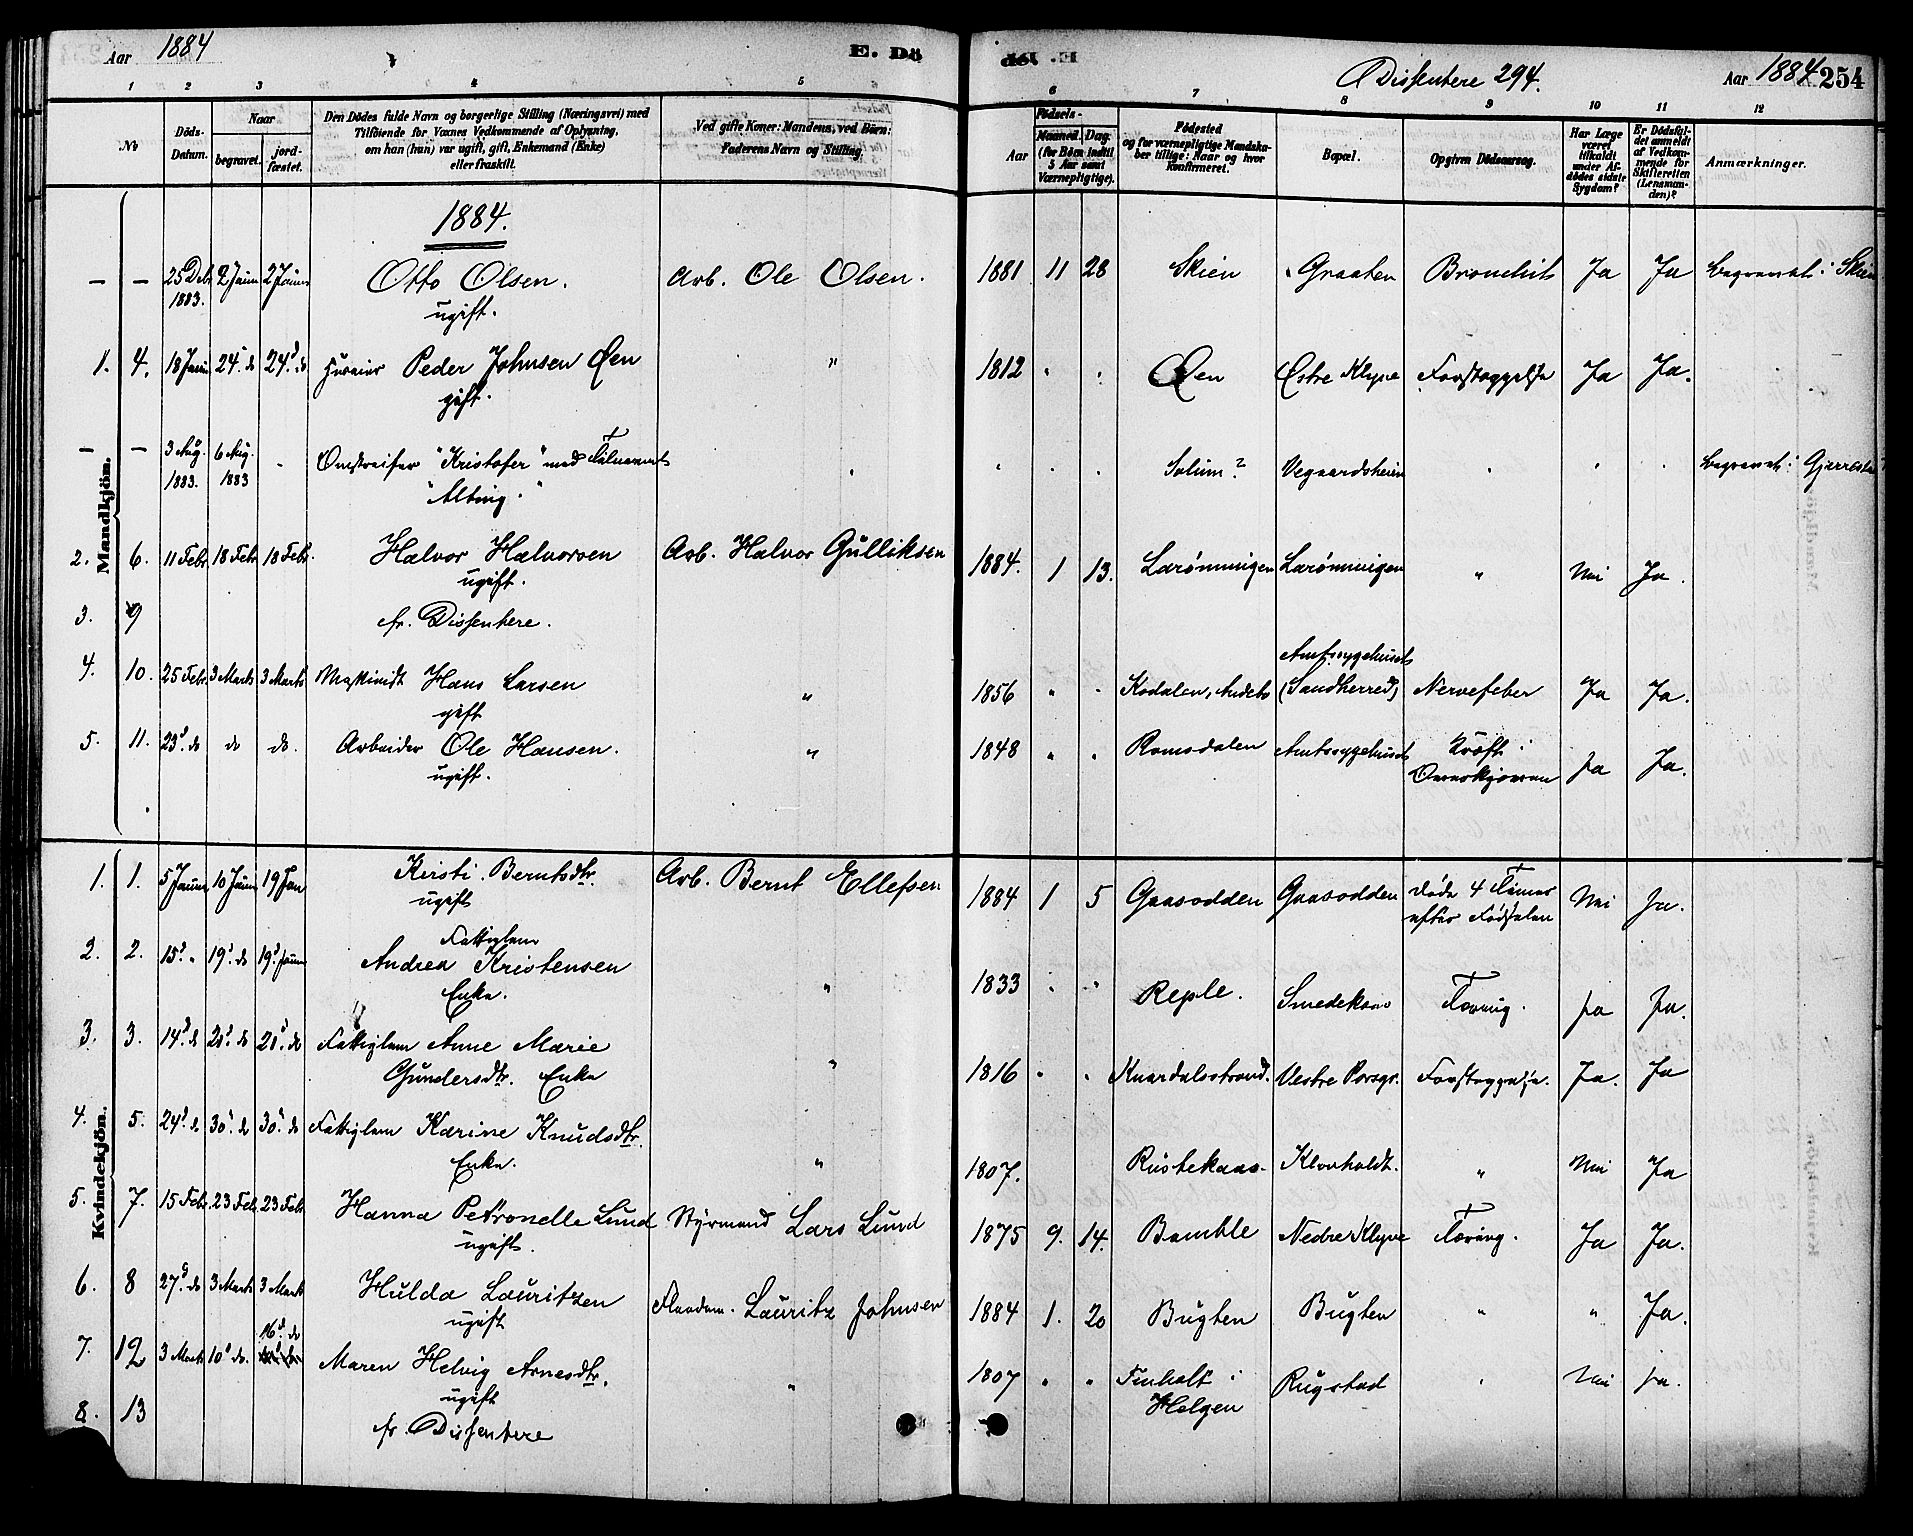 Aar 1884
E. Dö
Dissentere 294.
Aar 1884 254
1 2 3 4 5 6 7 8 9 10 11 12
No
Döds-Datum.
Naar
begravet. jord-fæstet.
Den Dödes fulde Navn og borgerlige Stilling (Næringsvei) med
Tilföiende for Voxnes Vedkommende af Oplysning,
om han (hun) var ugift, gift, Enkemand (Enke)
eller fraskilt.
Ved gifte Koner: Mandens, ved Börn:
Faderens Navn og Stilling.
Födsels-
Aar Maaned. Dag.
(for Börn indtil
5 Aar samt
Værnepligtige).
Födested
og for værnepligtige Mandska-
ber tillige: Naar og hvor
konfirmeret.
Bopæl.
Opgiven Dödsaarsag.
Har Læge
været
tilkaldt
under Af-
dödes sidste
Sygdom?
Er Dödsfal-
det anmeldt
af Vedkom-
mende for
Skifteretten
(Lensman-
den)?
Anmærkninger.
Mandkjön.
1884.
– – 25 Deb. 1883. 2 Januar 2 Januar Otto Olsen. Arb. Ole Olsen. 1881 11 28 Skien Graaten Bronchit Ja Ja begravet i Skien
ugift.
1. 4. 18 Januar 24. do 24. do Huseier Peder Johnsen Øen " 1812 Øen Østre Klyve Forstoppelse Ja Ja.
gift.
– – 3 Aug. 1883. 6 Aug. 1883 Omstreifer "Kristofer" med Tilnavnet Solum? Vegaardsheien begravet i
"Alting."
2. 6. 11 Febr. 18 Febr. 18 Febr. Halvor Halvorsen Arb. Halvor Gulliksen 1884. 1 13. Larönningen Larönningen " Nei Ja.
ugift.
3. 9 fr. Dissentere.
4. 10. 25 Febr. 3 Marts 3 Marts Maskinist Hans Larsen " 1856 " Kodalen, Andebo Amtssygehuset (Sandherred) Nervefeber Ja Ja.
gift
5. 11. 23. do do do. Arbeider Ole Hansen. " 1848 " Romsdalen Amtssygehuset Kræft i Ja Ja.
ugift.
Kvindekjön.
1. 1. 5 Januar 10 Januar 19 Jan Kirsti Berntsdtr. Arb. Bernt Ellefsen 1884 1 5 Gaasodden Gaasodden døde 4 Timer efter Fødselen Nei Ja.
ugift
2. 2. 15. " 19. do 19. Januar Fattiglem
Andrea Kristensen " 1833 " Reple. Smedekaas Tæring. Ja Ja.
Enke.
3. 3. 14. do 20. do 20. do Fattiglem Anne Marie " 1816 Knardalsstrand. Vestre Porsgr. Forstoppelse. Ja. Ja
Gundersdtr. Enke
4. 5. 24. do 30. do 30. do Fattiglem Karine Knudsdtr. " 1807. Rustekaas Klovholdt. " Nei Ja
Enke.
5. 7. 15 Febr. 23 Feb. 23 Feb. Hanna Petronelle Lund Styrmand Lars Lund 1875 9. 14. Bamble Nedre Klyve Tæring. Ja Ja.
ugift.
6. 8 27. do 3 Marts 3 Marts Hulda Lauritzen Lauritz Johnsen 1884 1. 20 Bugten Bugten " " Ja.
ugift
7. 12 3 Marts 10. do. 16. do Maren Helvig Arnesdtr. " 1807 " Finholt i Helgen Rugstad Nei Ja.
ugift
8. 13 fr. Dissentere